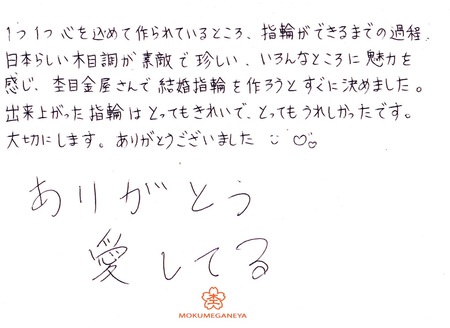 1つ1つ心を込めて作られているところ、指輪ができるまでの過程、
日本らしい木目調が素敵で珍しい、いろんなところに魅力を
感じ、杢目金屋さんで結婚指輪を作ろうとすぐに決めました。
出来上がった指輪はとってもきれいで、とってもうれしかったです。
大切にします。ありがとうございました
ありがとう
愛してる
杢
MOKUMEGANEYA